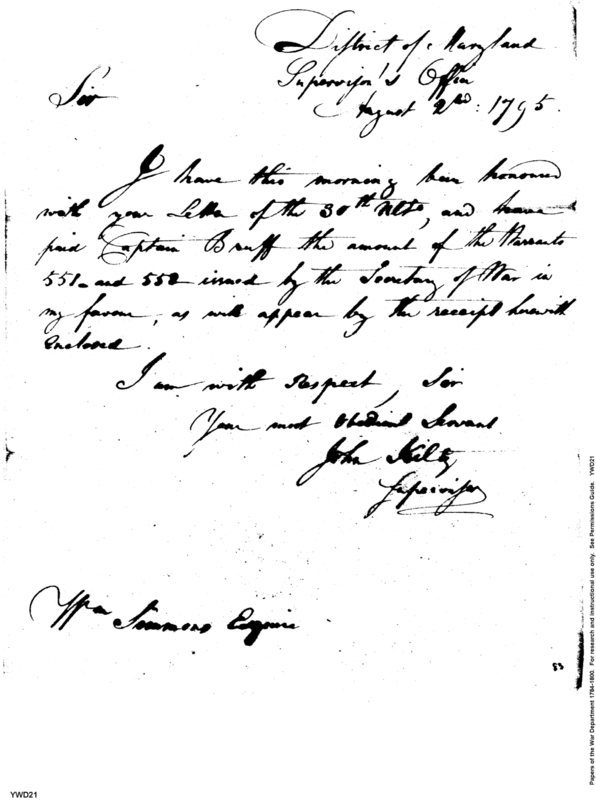 District of Maryland
Supervisor's Office
August 2nd: 1795.
Sir
I have this morning been honoured
with your Letter of the 30th Ulto, and have
paid Captain Bruff the amount of the Warrants
551 and 552 issued by the Secretary of War in
my favour, as will appear by the receipt herewith
enclosed.
I am with Respect, Sir
Your most Obedient Servant
John Kilty
Supervisor
Wm Simmons Esquire
53
YWD21
Papers of the War Department 1784-1800. For research and instructional use only. See Permissions Guide. YWD21